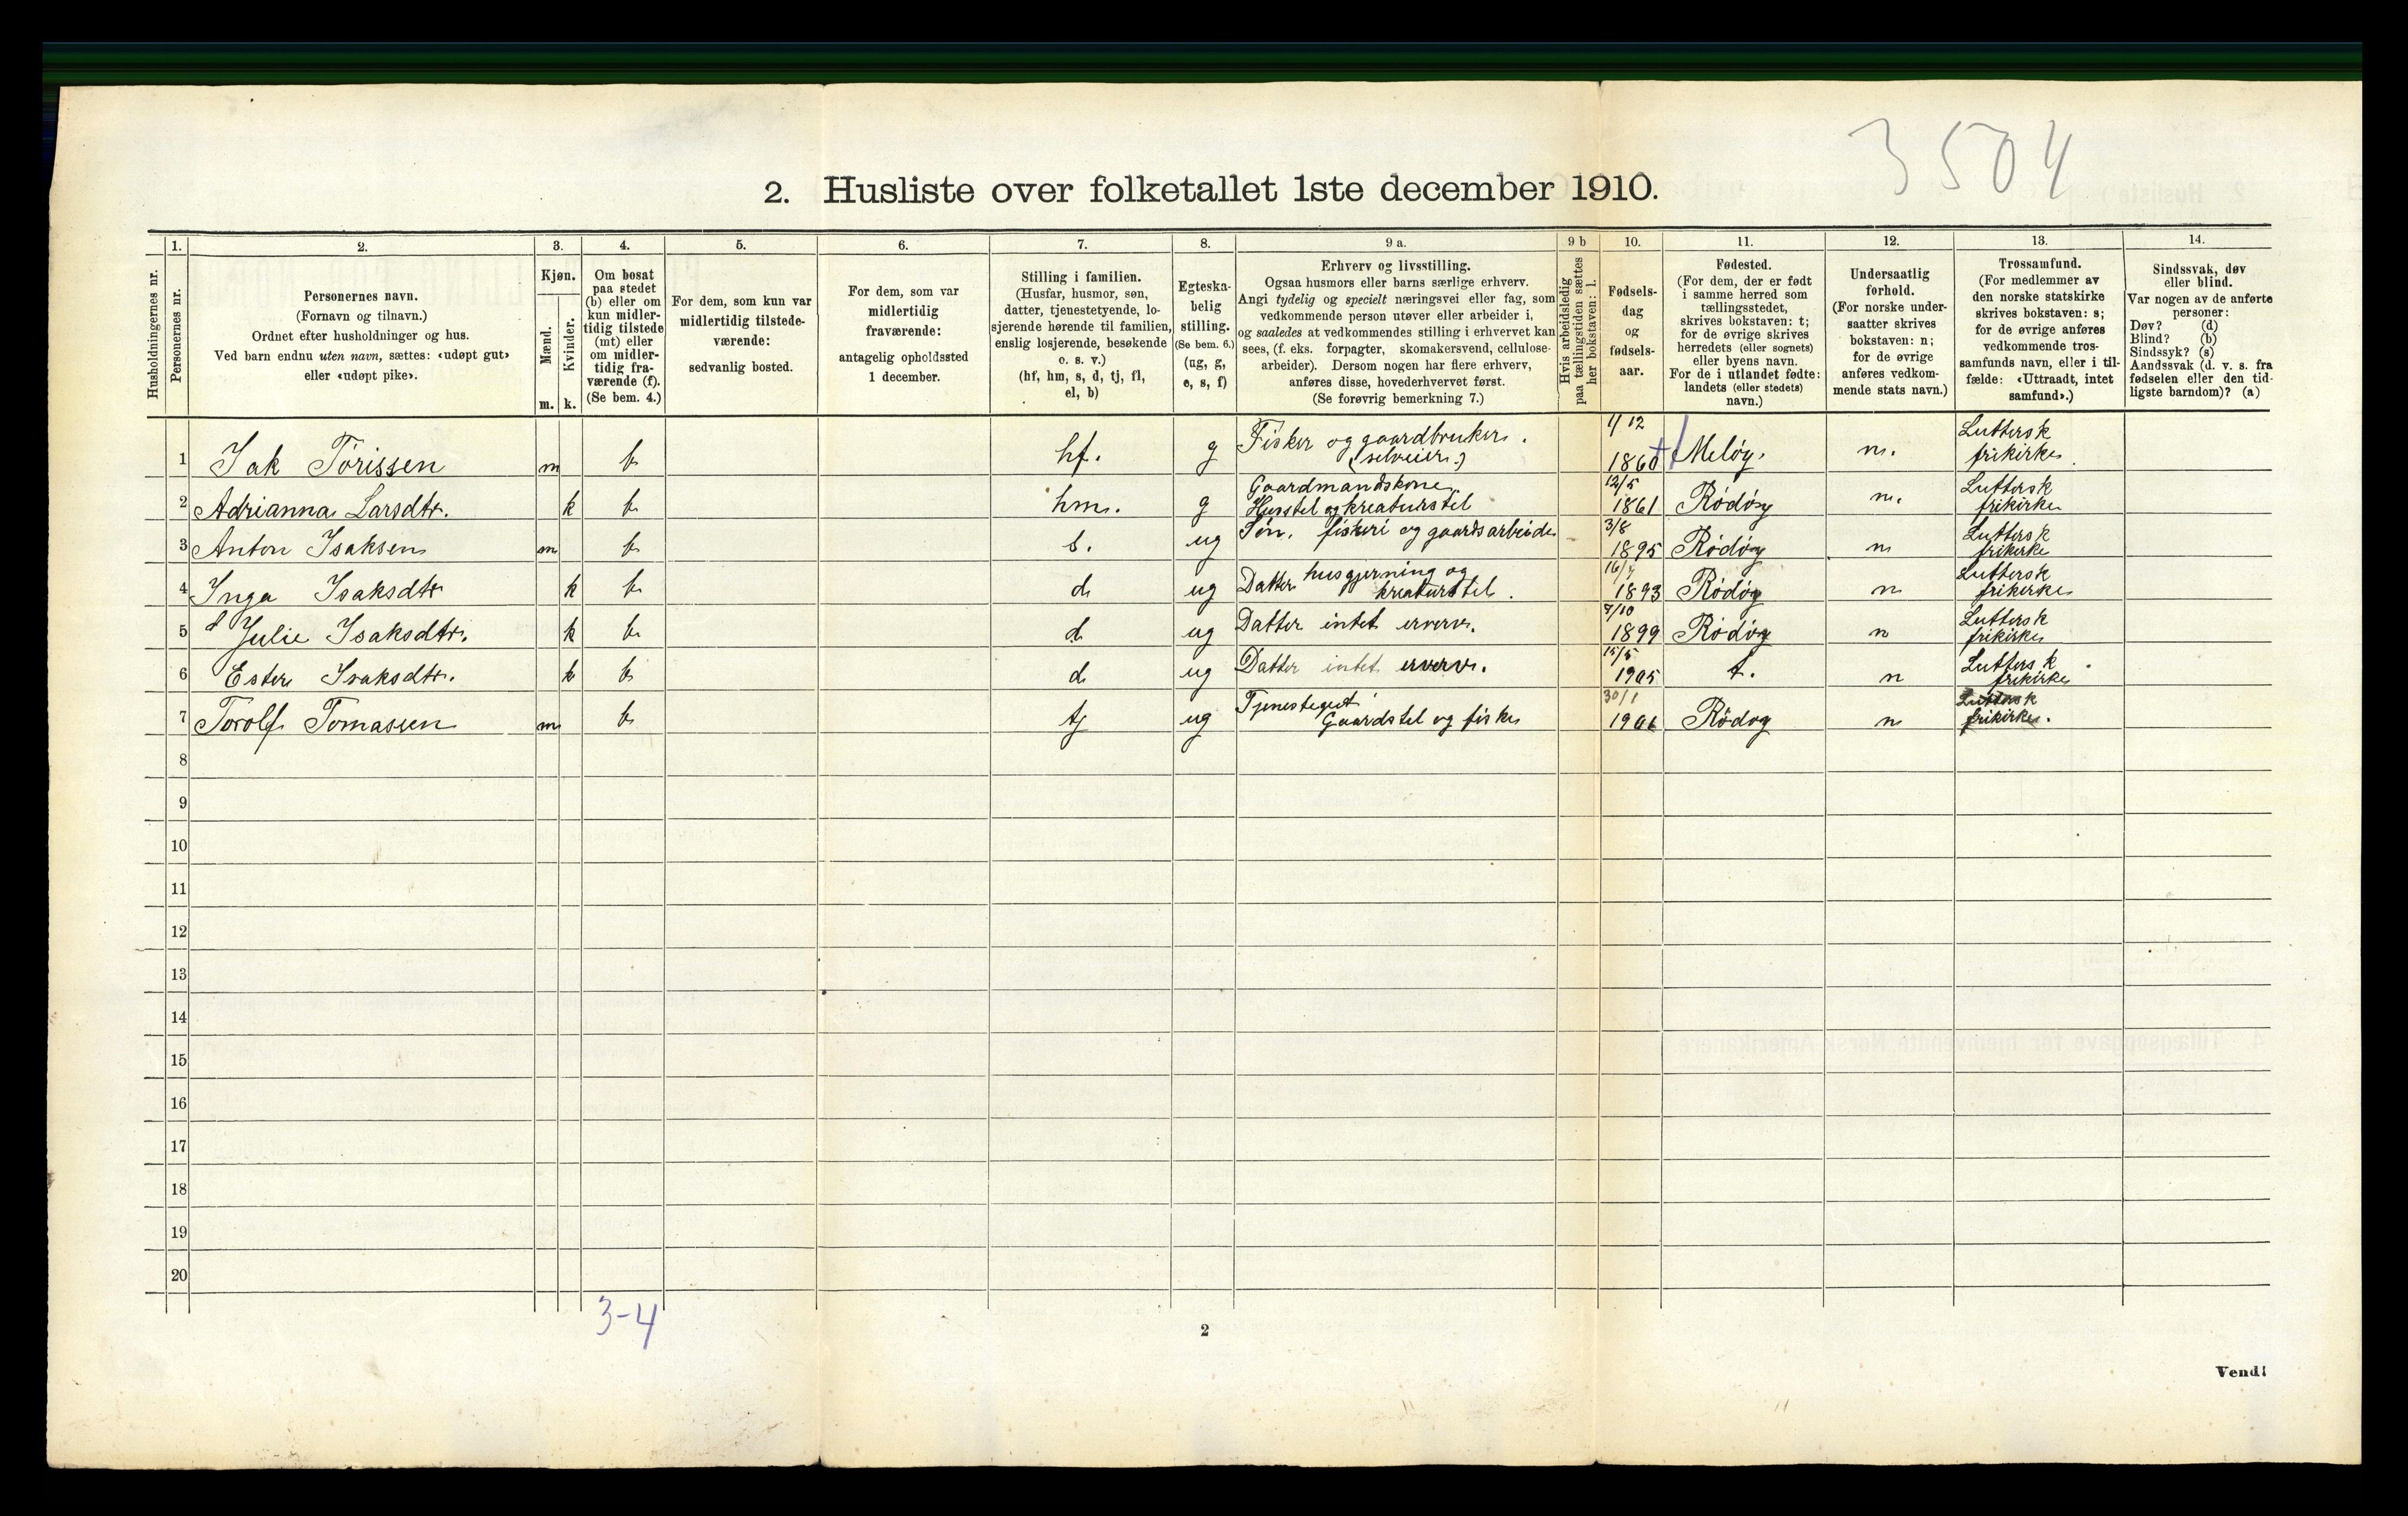 3504
2. Husliste over folketallet 1ste december 1910.
Husholdningernes nr.
1.
Personernes nr.
2.
Personernes navn.
(Fornavn og tilnavn.)
Ordnet efter husholdninger og hus.
Ved barn endnu uten navn, sættes: «udøpt gut»
eller «udøpt pike».
3.
Kjøn.
Mænd.
Kvinder.
m. k.
4.
Om bosat
paa stedet
(b) eller om
kun midler-
tidig tilstede
(mt) eller
om midler-
tidig fra-
værende (f).
(Se bem. 4.)
5.
For dem, som kun var
midlertidig tilstede-
værende:
sedvanlig bosted.
6.
For dem, som var
midlertidig
fraværende:
antagelig opholdssted
1 december.
7.
Stilling i familien.
(Husfar, husmor, søn,
datter, tjenestetyende, lo-
sjerende hørende til familien,
enslig losjerende, besøkende
o. s. v.)
(hf, hm, s, d, tj, fl,
el, b)
8.
Egteska-
belig
stilling.
(Se bem. 6.)
(ug, g,
e, s, f)
9 a.
Erhverv og livsstilling.
Ogsaa husmors eller barns særlige erhverv.
Angi tydelig og specielt næringsvei eller fag, som
vedkommende person utøver eller arbeider i,
og saaledes at vedkommendes stilling i erhvervet kan
sees, (f. eks. forpagter, skomakersvend, cellulose-
arbeider). Dersom nogen har flere erhverv,
anføres disse, hovederhvervet først.
(Se forøvrig bemerkning 7.)
9 b
Hvis arbeidsledig
paa tællingstiden sættes
her bokstaven: l.
10.
Fødsels-
dag
og
fødsels-
aar.
11.
Fødested.
(For dem, der er født
i samme herred som
tællingsstedet,
skrives bokstaven: t;
for de øvrige skrives
herredets (eller sognets)
eller byens navn.
For de i utlandet fødte:
landets (eller stedets)
navn.)
12.
Undersaatlig
forhold.
(For norske under-
saatter skrives
bokstaven: n;
for de øvrige
anføres vedkom-
mende stats navn.)
13.
Trossamfund.
(For medlemmer av
den norske statskirke
skrives bokstaven: s;
for de øvrige anføres
vedkommende tros-
samfunds navn, eller i til-
fælde: «Uttraadt, intet
samfund».)
14.
Sindssvak, døv
eller blind.
Var nogen av de anførte
personer:
Døv? (d)
Blind? (b)
Sindssyk? (s)
Aandssvak (d. v. s. fra
fødselen eller den tid-
ligste barndom)? (a)
1 Isak Torissen m b hf. g Fisker og gaardbruker. (selveier.) 1/12 1860 Meløy. n. Luttersk frikirke
2 Adrianna Larsdtr. k b hm. g Gaardmandskone Husstel og kreaturstel 12/5 1861 Rødøy n. Luttersk frikirke
3 Anton Isaksen m b s. ug Søn. fiskeri og gaardsarbeide 3/8 1895 Rødøy n Luttersk frikirke
4 Inga Isaksdtr k b d ug Datter husgjerning og kreaturstel. 16/7 1893 Rødøy n Luttersk frikirke
5 Julie Isaksdtr. k b d ug Datter intet erverv. 7/10 1899 Rødøy n Luttersk frikirke
6 Ester Isaksdtr. k b d ug Datter intet erverv. 15/5 1905 t. n Luttersk frikirke
7 Torolf Tomassen m b tj ug Tjenestegut Gaardstel og fiske 30/1 Rødøy n Luttersk frikirke.
8
9
10
11
12
13
14
15
16
17
18
19
20
3-4
2
Vend!